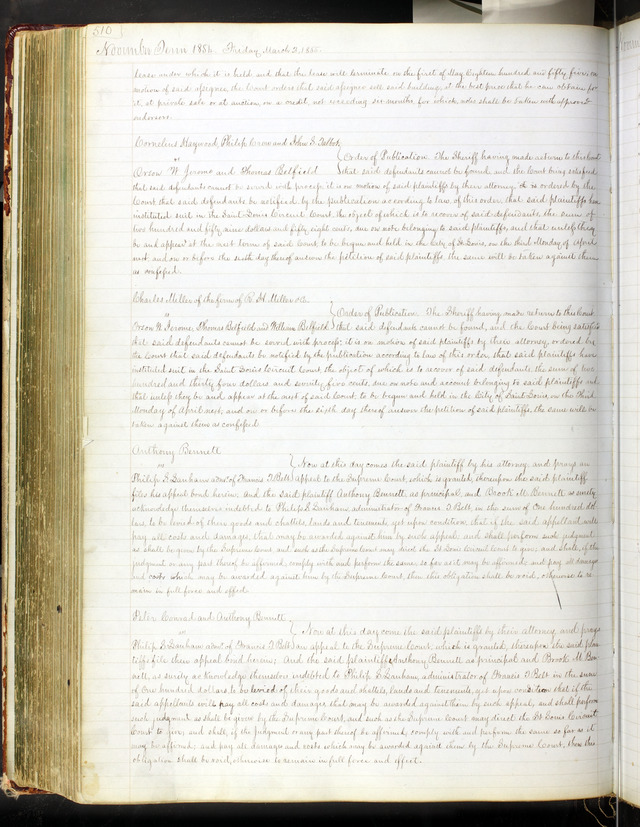 510
November Term 1854. Friday March 2, 1855.
lease under which it is held, and that the lease will terminate on the first of May Eighteen hundred and fifty five, on
motion of said assignee, the Court orders that said assignee sell said building, at the best price that he can obtain for
it, at private sale or at auction, on a credit, not exceeding six months, for which note shall be taken with approved
endorsers.
Cornelius Maywood, Philip Crow and John S. Talbot
vs
Orson W. Jerome and Thomas Belfield
Order of Publication. The Sheriff having made return to this Court
that said defendants cannot be found, and the Court being satisfied
that said defendants cannot be served with process it is on motion of said plaintiffs by their attorney, it is ordered by the
Court that said defendants be notified by the publication according to law of this order, that said plaintiffs have
instituted suit in the Saint Louis Circuit Court, the object of which is to recover of said defendants, the sum of
two hundred and fifty nine dollars and fifty eight cents, due on note belonging to said plaintiffs, and that unless they
be and appear at the next term of said Court to be begun and held in the City of St Louis, on the third Monday of April
next, and on or before the sixth day thereof answer the petition of said plaintiffs, the same will be taken against them
as confessed.
Charles Miller of the firm of R. H. Miller &
vs
Orson W. Jerome, Thomas Belfield and William Belfield
Order of Publication. The Sheriff having made return to this Court
that said defendants cannot be found, and the Court being satisfied
that said defendants cannot be served with process it is on motion of said plaintiffs by their attorney, ordered by
the Court that said defendants be notified by the publication according to law of this order, that said plaintiffs have
instituted suit in the Saint Louis Circuit Court, the object of which is to recover of said defendants the sum of two
hundred and thirty four dollars and seventy five cents, due on note and account belonging to said plaintiffs and
that unless they be and appear at the next of said Court, to be begun and held in the City of Saint Louis, on the Third
Monday of April next, and on or before the sixth day thereof answer the petition of said plaintiffs, the same will be
taken against them as confessed.
Anthony Bennett
vs
Philip S. Lanham adm'r of Francis T. Belt
Now at this day comes the said plaintiff by his attorney and prays an
appeal to the Supreme Court, which is granted, thereupon the said plaintiff
files his appeal bond herein. And the said plaintiff Anthony Bennett, as principal, and Brook M. Bennett as surety
acknowledge themselves indebted to Philip S. Lanham, administrator of Francis T. Belt, in the sum of One hundred dol
lars, to be levied of their goods and chattels, lands and tenements, yet upon condition that if the said appellant will
pay all costs and damages, that may be awarded against him by such appeal, and shall perform such judgment
as shall be given by the Supreme Court, and such as the Supreme Court may direct the St Louis Circuit Court to give, and shall, if the
judgment or any part thereof be affirmed, comply with and perform the same, so far as it may be affirmed, and pay all damages
and costs which may be awarded against him by the Supreme Court, then this obligation shall be void, otherwise to re
main in full force and effect.
Peter Conrad and Anthony Bennett
vs
Philip S. Lanham adm'r of Francis T. Belt
Now at this day come the said plaintiffs by their attorney, and prays
an appeal to the Supreme Court, which is granted, thereupon the said plain
tiffs file their appeal bond herein; And the said plaintiffs, Anthony Bennett as principal and Brook M. Ben
nett, as surety acknowledge themselves indebted to Philip S. Lanham, administrator of Francis T. Belt in the sum
of One hundred dollars to be levied of their goods and chattels, lands and tenements, yet upon condition that if the
said appellants will pay all costs and damages that may be awarded against them by such appeal, and shall perform
such judgment as shall be given by the Supreme Court, and such as the Supreme Court may direct the St Louis Circuit
Court to give, and shall, if the judgment or any part thereof be affirmed, comply with and perform the same so far as it
may be affirmed, and pay all damages and costs which may be awarded against them by the Supreme Court, then this
obligation shall be void, otherwise to remain in full force and effect.